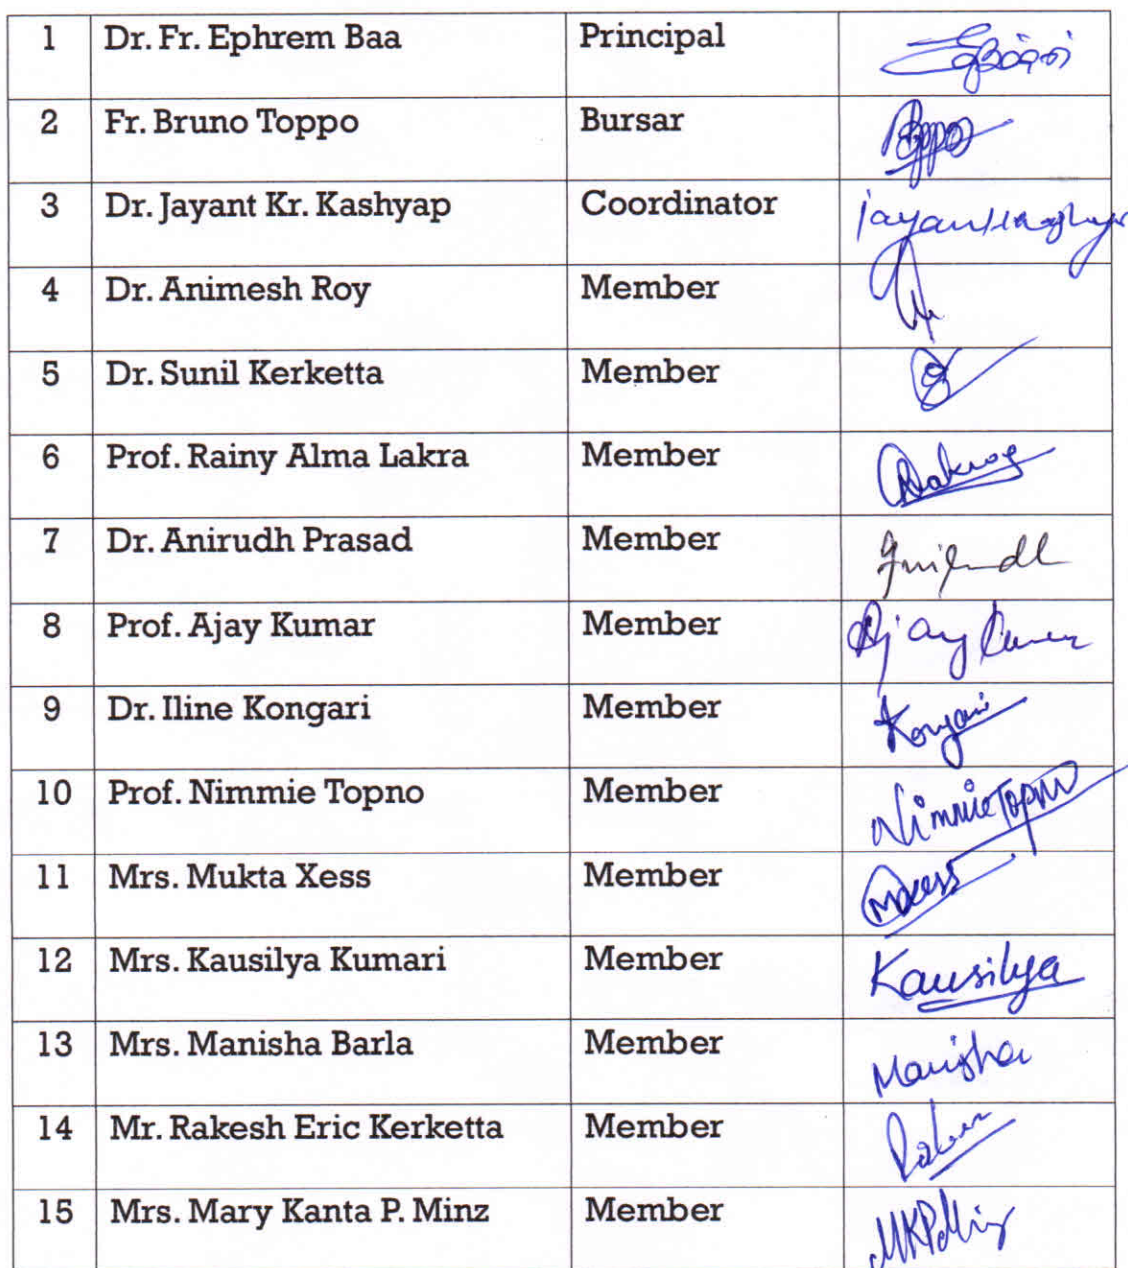 1 Dr. Fr. Ephrem Baa Principal
2 Fr. Bruno Toppo Bursar
3 Dr. Jayant Kr. Kashyap Coordinator
4 Dr. Animesh Roy Member
5 Dr. Sunil Kerketta Member
6 Prof. Rainy Alma Lakra Member
7 Dr. Anirudh Prasad Member
8 Prof. Ajay Kumar Member Ajay Kumar
9 Dr. Iline Kongari Member Kongari
10 Prof. Nimmie Topno Member Nimmie Topno
11 Mrs. Mukta Xess Member
12 Mrs. Kausilya Kumari Member Kausilya
13 Mrs. Manisha Barla Member Manisha
14 Mr. Rakesh Eric Kerketta Member
15 Mrs. Mary Kanta P. Minz Member MKPMinz